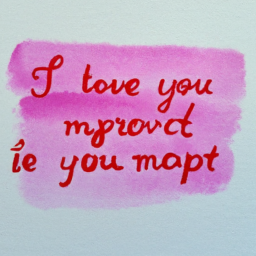 I tove you
mprovct
îe you mapt